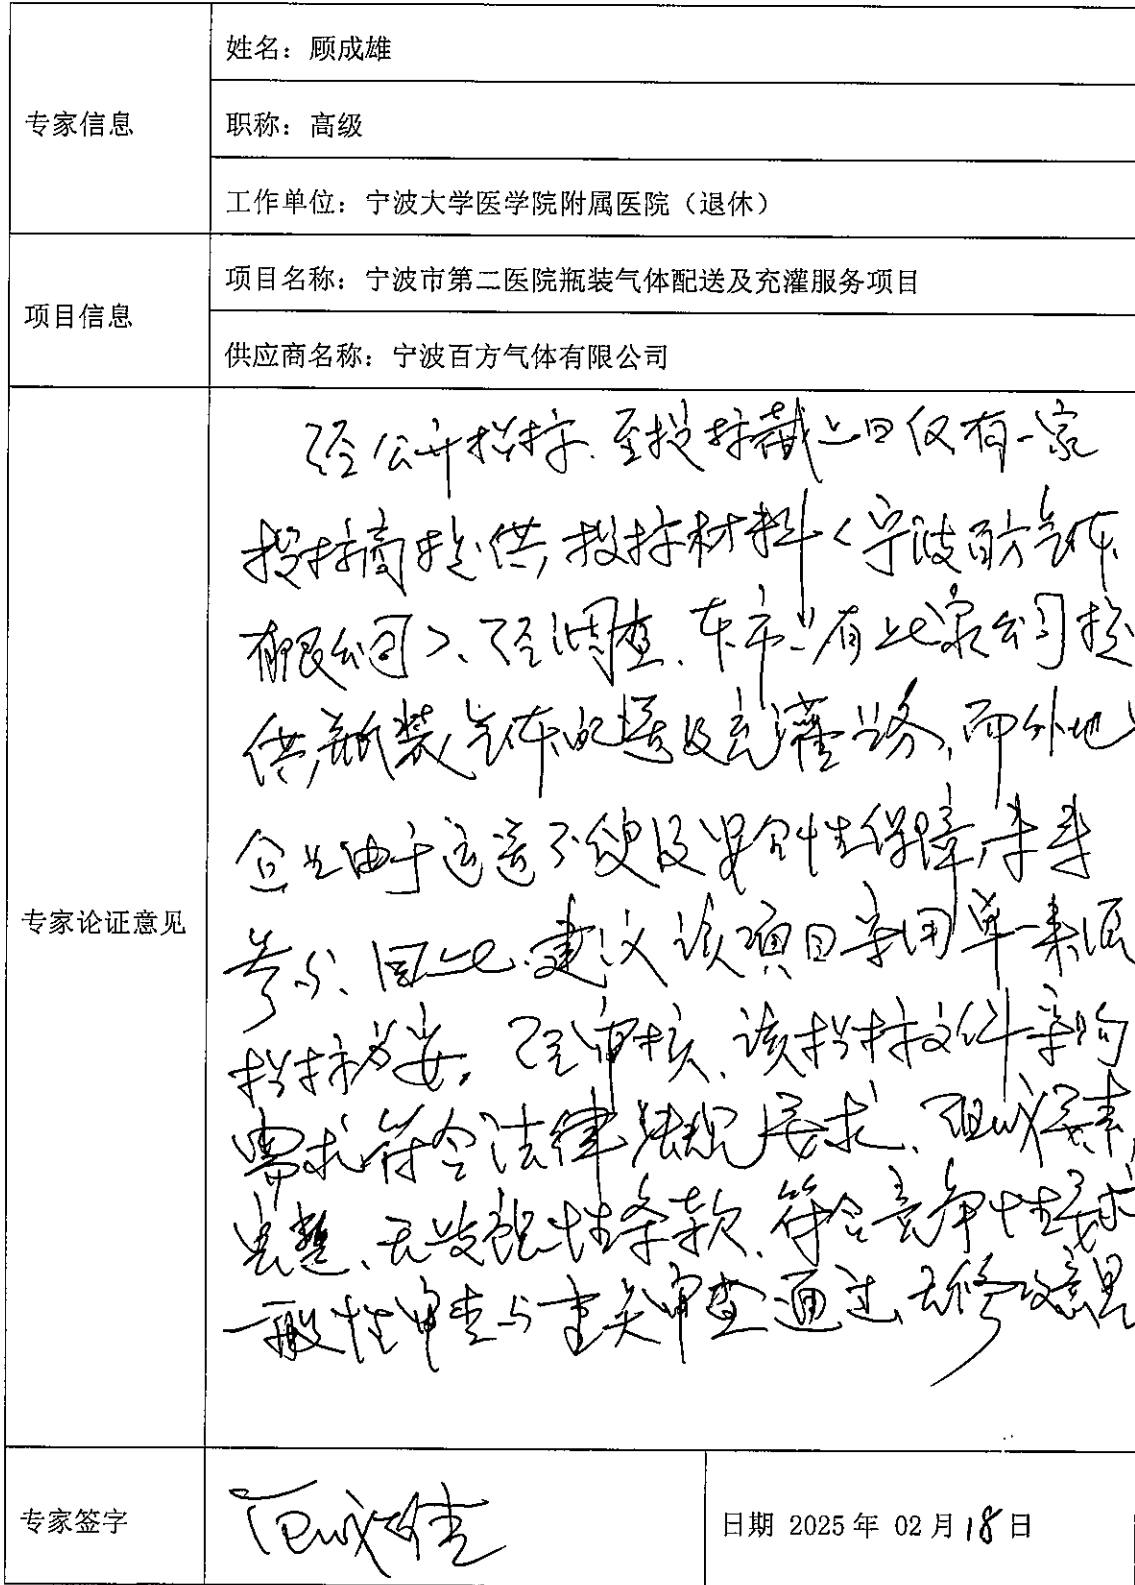 姓名：顾成雄
专家信息
职称：高级
工作单位：宁波大学医学院附属医院（退休）
项目名称：宁波市第二医院瓶装气体配送及充灌服务项目
项目信息
供应商名称：宁波百方气体有限公司
经公开招标、至投标截止日仅有一家
投标商提供投标材料<宁波百方气体
有限公司>、经调查、本市只有此家公司提
供瓶装气体配送及充灌业务，而外地
企业由于运送不便及安全性保障，未来
专家论证意见
参与、因此、建议该项目采用单一来源
招标为妥。经审核、该招标文件采购
需求符合法律法规要求、组成要素
完整、无歧视性条款、符合竞争性要求
一般性审查与重点审查通过，无修改意见
专家签字
顾成雄
日期 2025年 02月18日